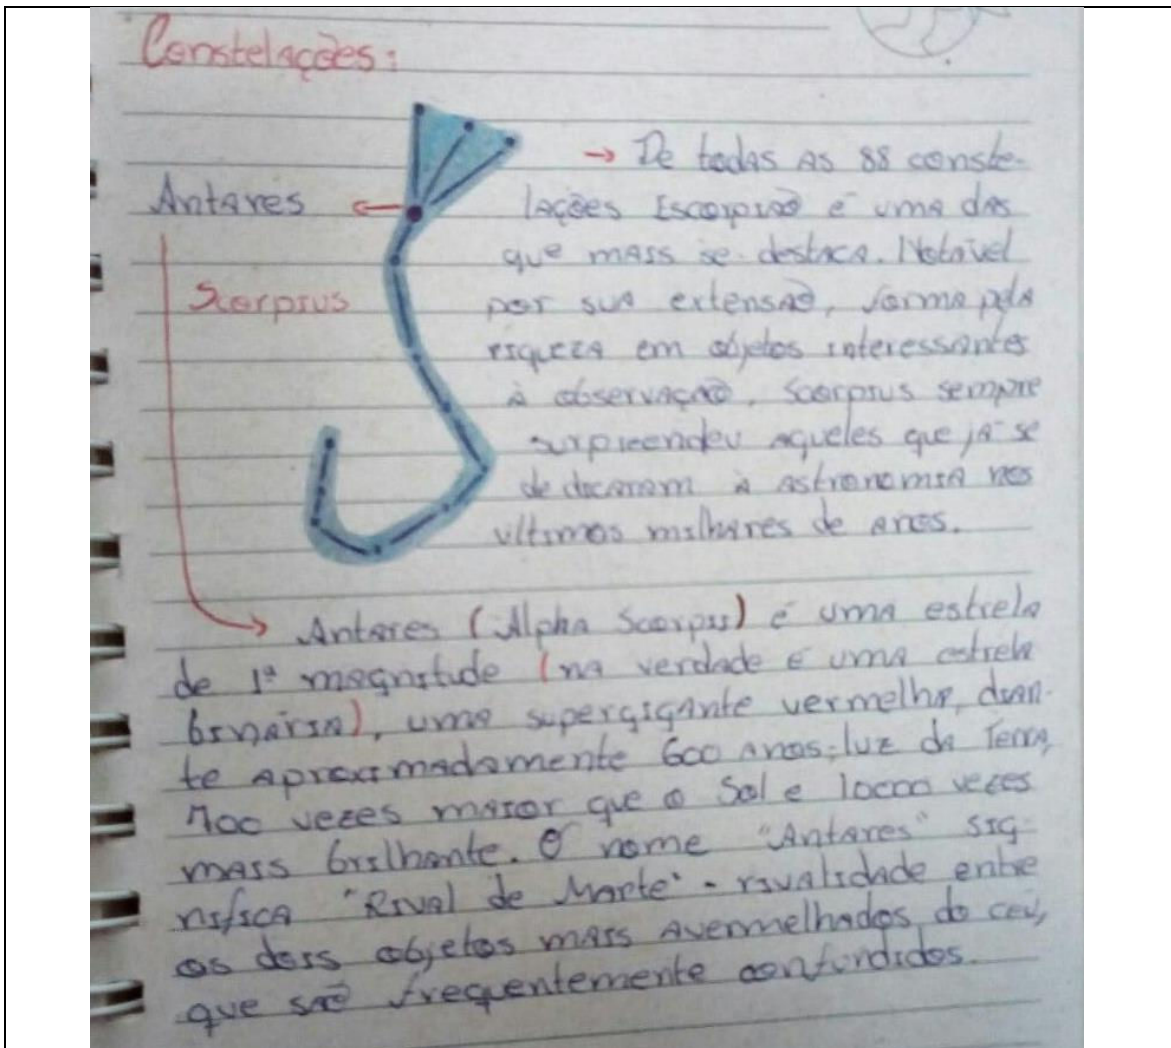 Constelações:
→ De todas as 88 conste-
Antares ← lações Escorpião é uma das
que mais se destaca. Notável
Scorpius por sua extensão, forma pela
riqueza em objetos interessantes
à observação, Scorpius sempre
surpreendeu aqueles que já se
dedicaram à astronomia nos
últimos milhares de anos.
→ Antares (Alpha Scorpii) é uma estrela
de 1ª magnitude (na verdade é uma estrela
binária), uma supergigante vermelha, distan-
te aproximadamente 600 anos-luz da Terra,
700 vezes maior que o Sol e 10000 vezes
mais brilhante. O nome "Antares" sig-
nifica "Rival de Marte" - rivalidade entre
os dois objetos mais avermelhados do céu,
que são frequentemente confundidos.